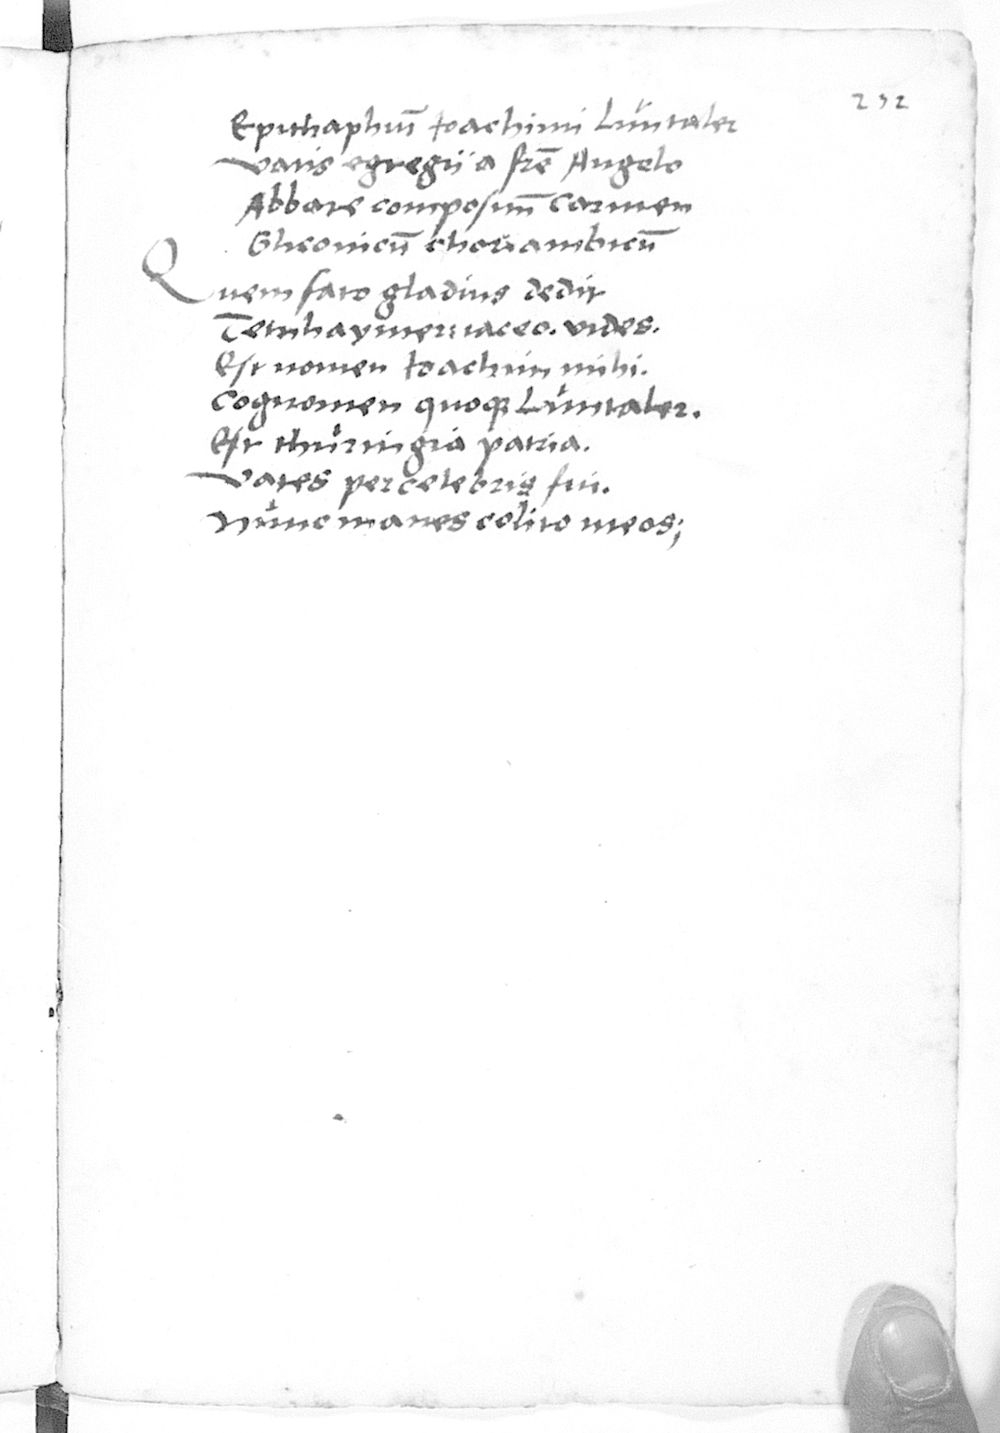 232
Epithaphiū Ioachimi Lŭntaler
vatis egregij a frē Angelo
Abbate composituꝫ Carmen
Gliconicū choriambicū
Quem fato gladius dedit
iaceo. vides.
Est nomen Ioachim mihi.
Cognomen quoqꝫ Lŭntaler.
Est thŭringia patria.
Vates percelebris fui.
Nŭnc manes colito meos;